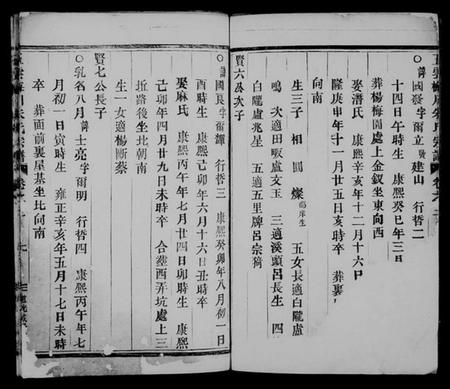 ○諱國發字爾立號建山 行哲二
十四日午時生 康熙癸巳年三月
葬楊梅園處上金釵坐東向西
娶潘氏 康熙辛亥年十二月十六日
隆庚申年十一月廿五日亥時卒 葬裏
向南
生三子 相 圓 燦 五女長適白隴盧
鳴 次適田畈盧文玉 三適溪頭呂長生 四
白隴盧兆星 五適五里牌呂宗
賢六公次子
○諱國良字爾鐸 行哲三 康熙癸卯年八月初一日
酉時生 康熙己卯年六月十六日丑時卒
娶麻氏 康熙丁未年七月廿四日卯時生 康熙
己卯年四月廿九日未時卒 合葬西弄坑處上三
近路後坐北朝南
生一女適楊斷蔡
賢七公長子
○乳名八月諱士亮字爾明 行哲四 康熙丙午年七
月初一日寅時生 雍正辛亥年五月十七日未時
卒 葬面前裏屋基坐北向南